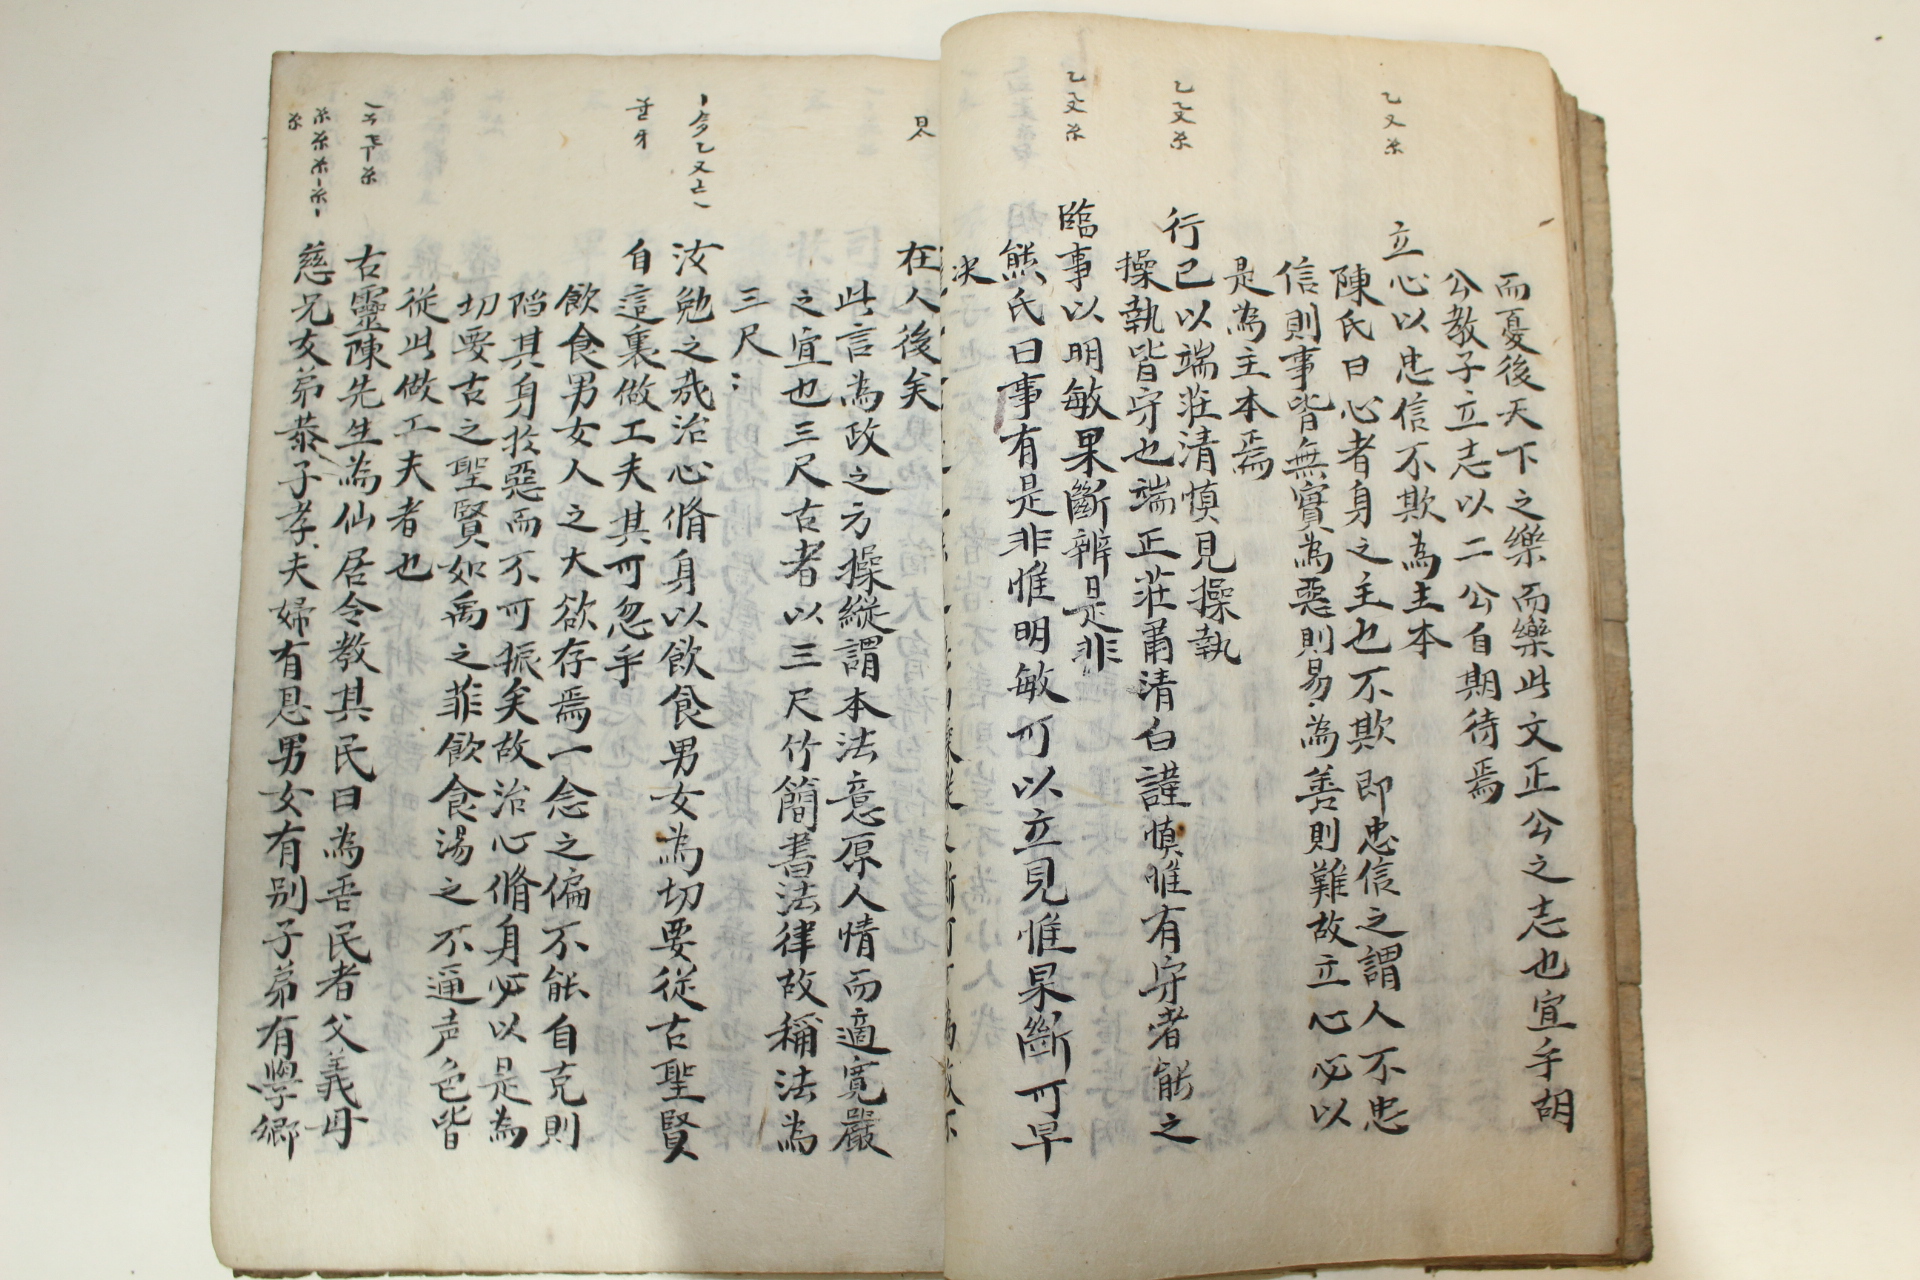 而憂後天下之樂而樂此文正公之志也宜乎胡
公教子立志以二公自期待焉
立心以忠信不欺為主本
陳氏曰心者身之主也不欺即忠信之謂人不忠
信則事皆無實為惡則易為善則難故立心必以
是為主本焉
行己以端莊清慎見操執
操執皆守也端正莊肅清白謹慎惟有守者能之
臨事以明敏果斷辨是非
熊氏曰事有是非惟明敏可以立見惟果斷可早
决
在人後矣
此言為政之方操縱謂本法意原人情而適寬嚴
之宜也三尺古者以三尺竹簡書法律故稱法為
三尺
汝勉之哉治心脩身以飲食男女為切要從古聖賢
自這裏做工夫其可忽乎
飲食男女人之大欲存焉一念之偏不能自克則
陷其身於惡而不可振矣故治心脩身必以是為
切要古之聖賢如禹之菲飲食湯之不邇声色皆
從此做工夫者也
古靈陳先生為仙居令教其民曰為吾民者父義母
慈兄女弟恭子孝夫婦有恩男女有别子弟有學鄉